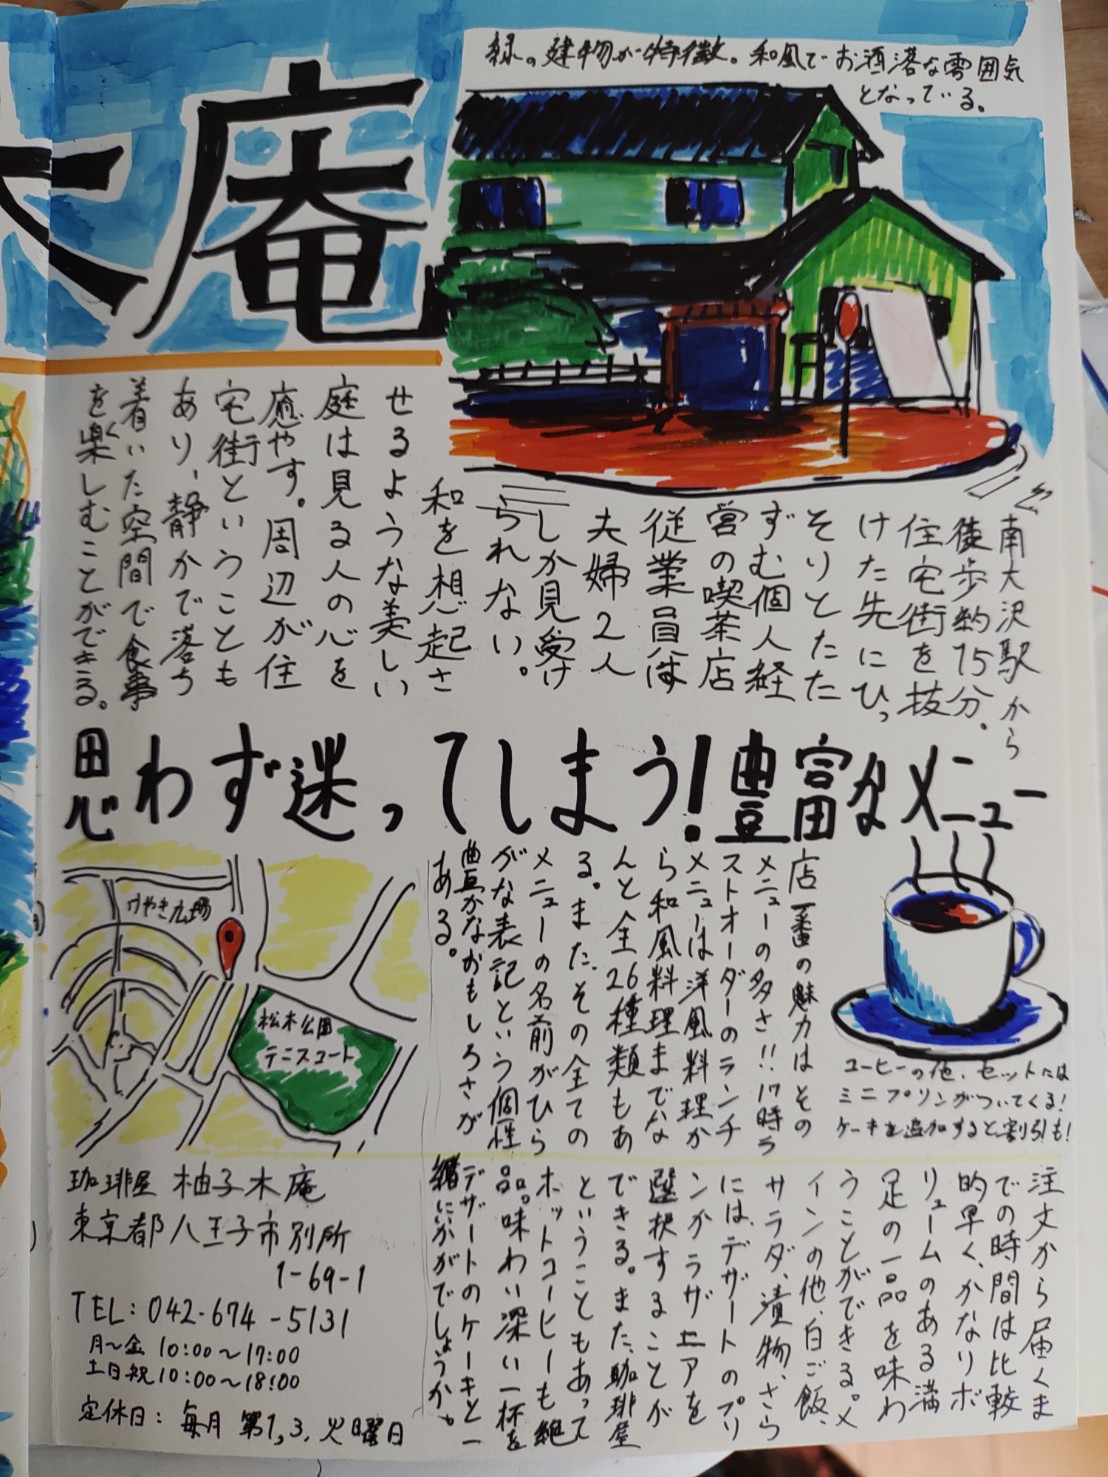 木庵
緑の建物が特徴。和風でお洒落な雰囲気
となっている。
南大沢駅から
徒歩約15分。
住宅街を抜
けた先にひっ
そりとたた
ずむ個人経
営の喫茶店
従業員は
夫婦2人
しか見受け
られない。
和を想起さ
せるような美しい
庭は見る人の心を
癒やす。周辺が住
宅街ということも
あり、静かで落ち
着いた空間で食事
を楽しむことができる。
思わず迷ってしまう!豊富なメニュー
店一番の魅力はその
メニューの多さ!!17時ラ
ストオーダーのランチ
メニューは洋風料理か
ら和風料理までな
んと全26種類もあ
る。また、その全ての
メニューの名前がひら
がな表記という個性
豊かなおもしろさが
ある。
コーヒーの他、セットには
ミニプリンがついてくる!
ケーキを追加すると割引も!
けやき広場
松木公園
テニスコート
注文から届くま
での時間は比較
的早く、かなりボ
リュームのある満
足の一品を味わ
うことができる。メ
インの他、白ご飯、
サラダ、漬物、さら
には、デザートのプリ
ンかラザニアを
選択することが
できる。また、珈琲屋
ということもあって
ホットコーヒーも絶
品。味わい深い一杯を
デザートのケーキと一
緒にいかがでしょうか。
珈琲屋 柚子木庵
東京都八王子市別所
1-69-1
TEL:042-674-5131
月〜金 10:00〜17:00
土日祝 10:00〜18:00
定休日:毎月 第1,3,火曜日